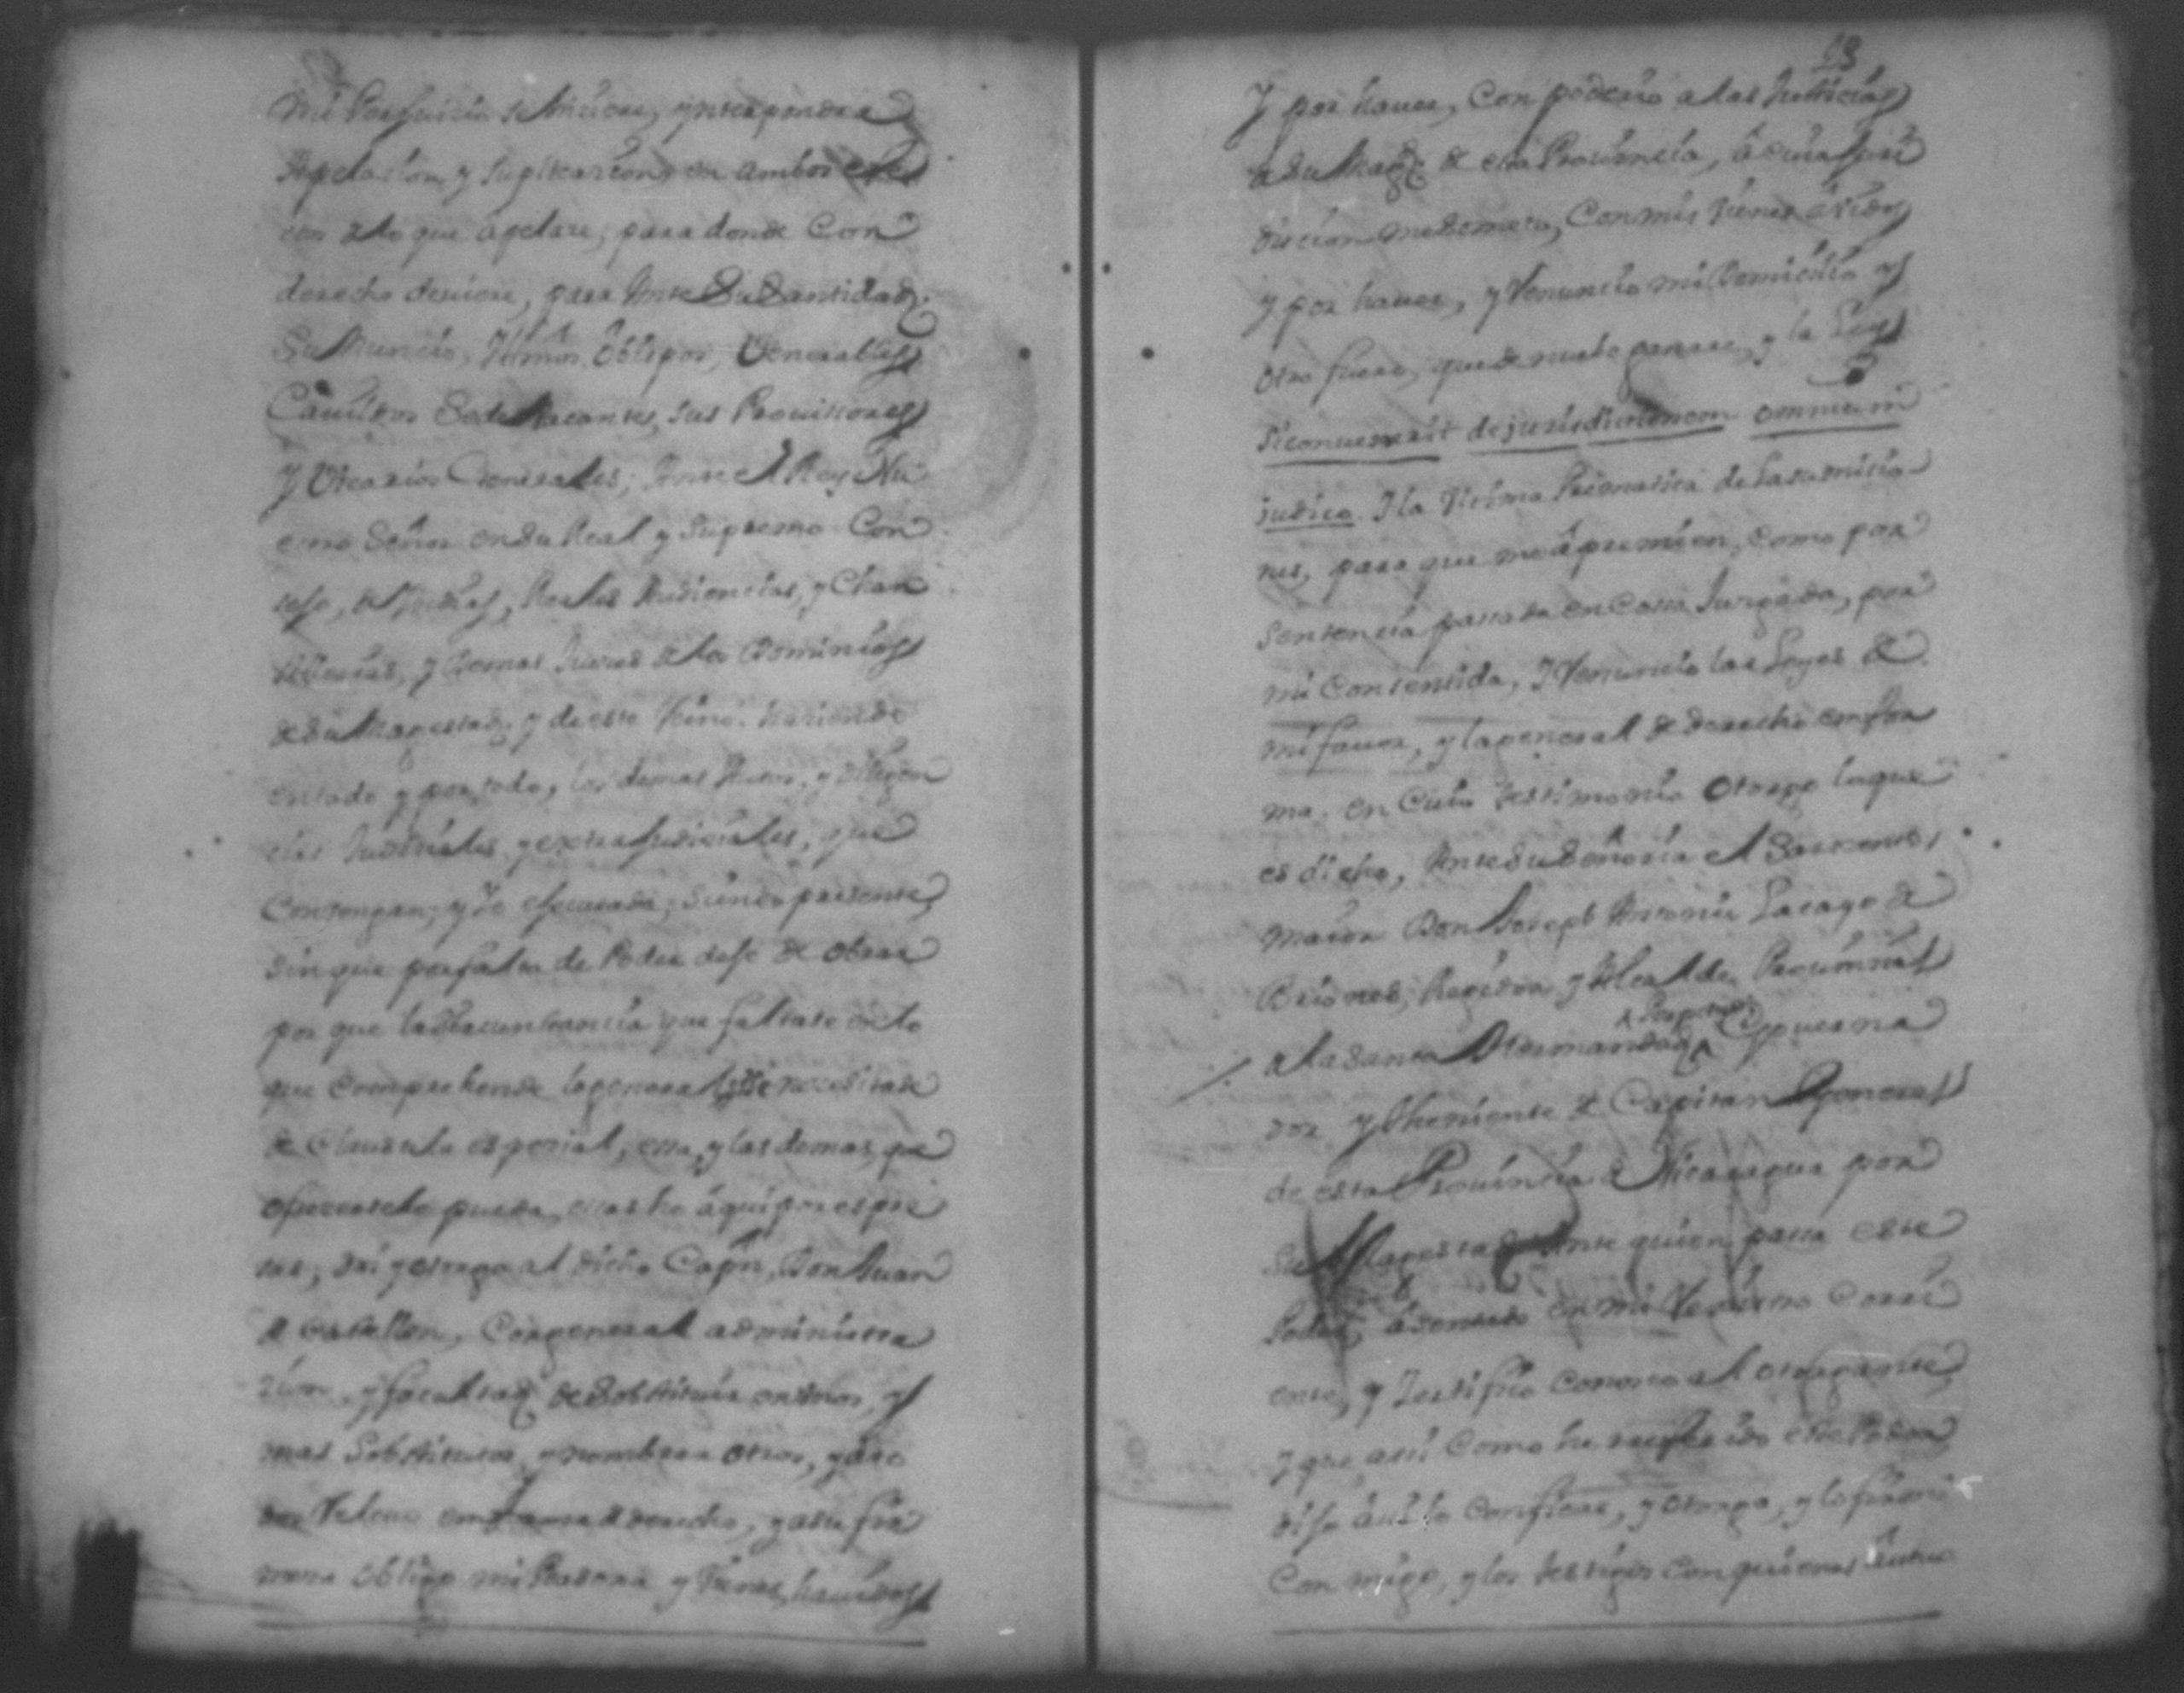 mi Perjuicio se hiciere, ynterpondra
Apelacion, y Suplicacion, en ambos efec
con a lo que apelare, para donde Con
derecho deviere, para Ante Su Santidad,
Su Nuncio, Illmos. Obispos, Venerables
Cavildos Sede Vacantes, sus Provissores
Y Vicarios Generales; Ante el Rey Nu
estro Señor en Su Real y Supremo Con
sejo, de Indias, Reales Audiencias, y Chan
sillerias, y demas Jueces de los Dominios
de Su Magestad, y de este Reino. haciendo
en todo y por todo, los demas Autos, y diligen
cias Judiciales y extrajudiciales, que
Convengan, y Yo executara, siendo presente,
sin que por falta de Poder deje de obrar
por que la circunstancia que faltare en lo
que comprehende la general, y se necesitare
de clausula especial, essa, y las demas que
ofrecersele pueda, essas he aqui por espre
sas; doi y otorgo al dicho Capn. Don Juan
de Castellon, Con general administra
cion, y facultad de Sobstituir en unos, y
mas Sobstitutos, y nombrar otros, y a to
dos Relevo en forma de derecho, y a su fir
meza obligo mi Persona y Vienes, havidos
13
Y por haver, Con poderio a las Justicias
de Su Magd. de esta Provincia, à cuia Juris
diccion me someto, Con mis Vienes avidos
y por haver, y Renuncio mi Domicilio y
otro fuero, que de nuebo ganare, y la Ley
Siconvenerit de jurisdictionem omnium
judico. Y la Ultima Pracmatica de las sumicio
nes, para que me àpremien, como por
Sentencia passada en Cossa Jurgada, por
mi Consentida, Y Renuncio las Leyes de
mi favor, y la general de derecho en for
ma. en Cuio testimonio otorgo lo que
es dicho, Ante Su Señoria el Sarxento
maior Don Joseph Antonio Lacayo de
Briones, Regidor y Alcalde Provinsial
de la Santa Hermandad, Perpetuo Governa
dor y theniente de Capitan General
de esta Provincia de Nicaragua por
Su Magestad Ante quien passa este
Poder, àsentado en mi Rexistro Corri
ente, y Sertifico conosco al otorgante
y que assi como ha referido este Poder
dijo assi lo Confiesa, y otorga, y lo firmó
Con migo, y los testigos con quienes àutuo